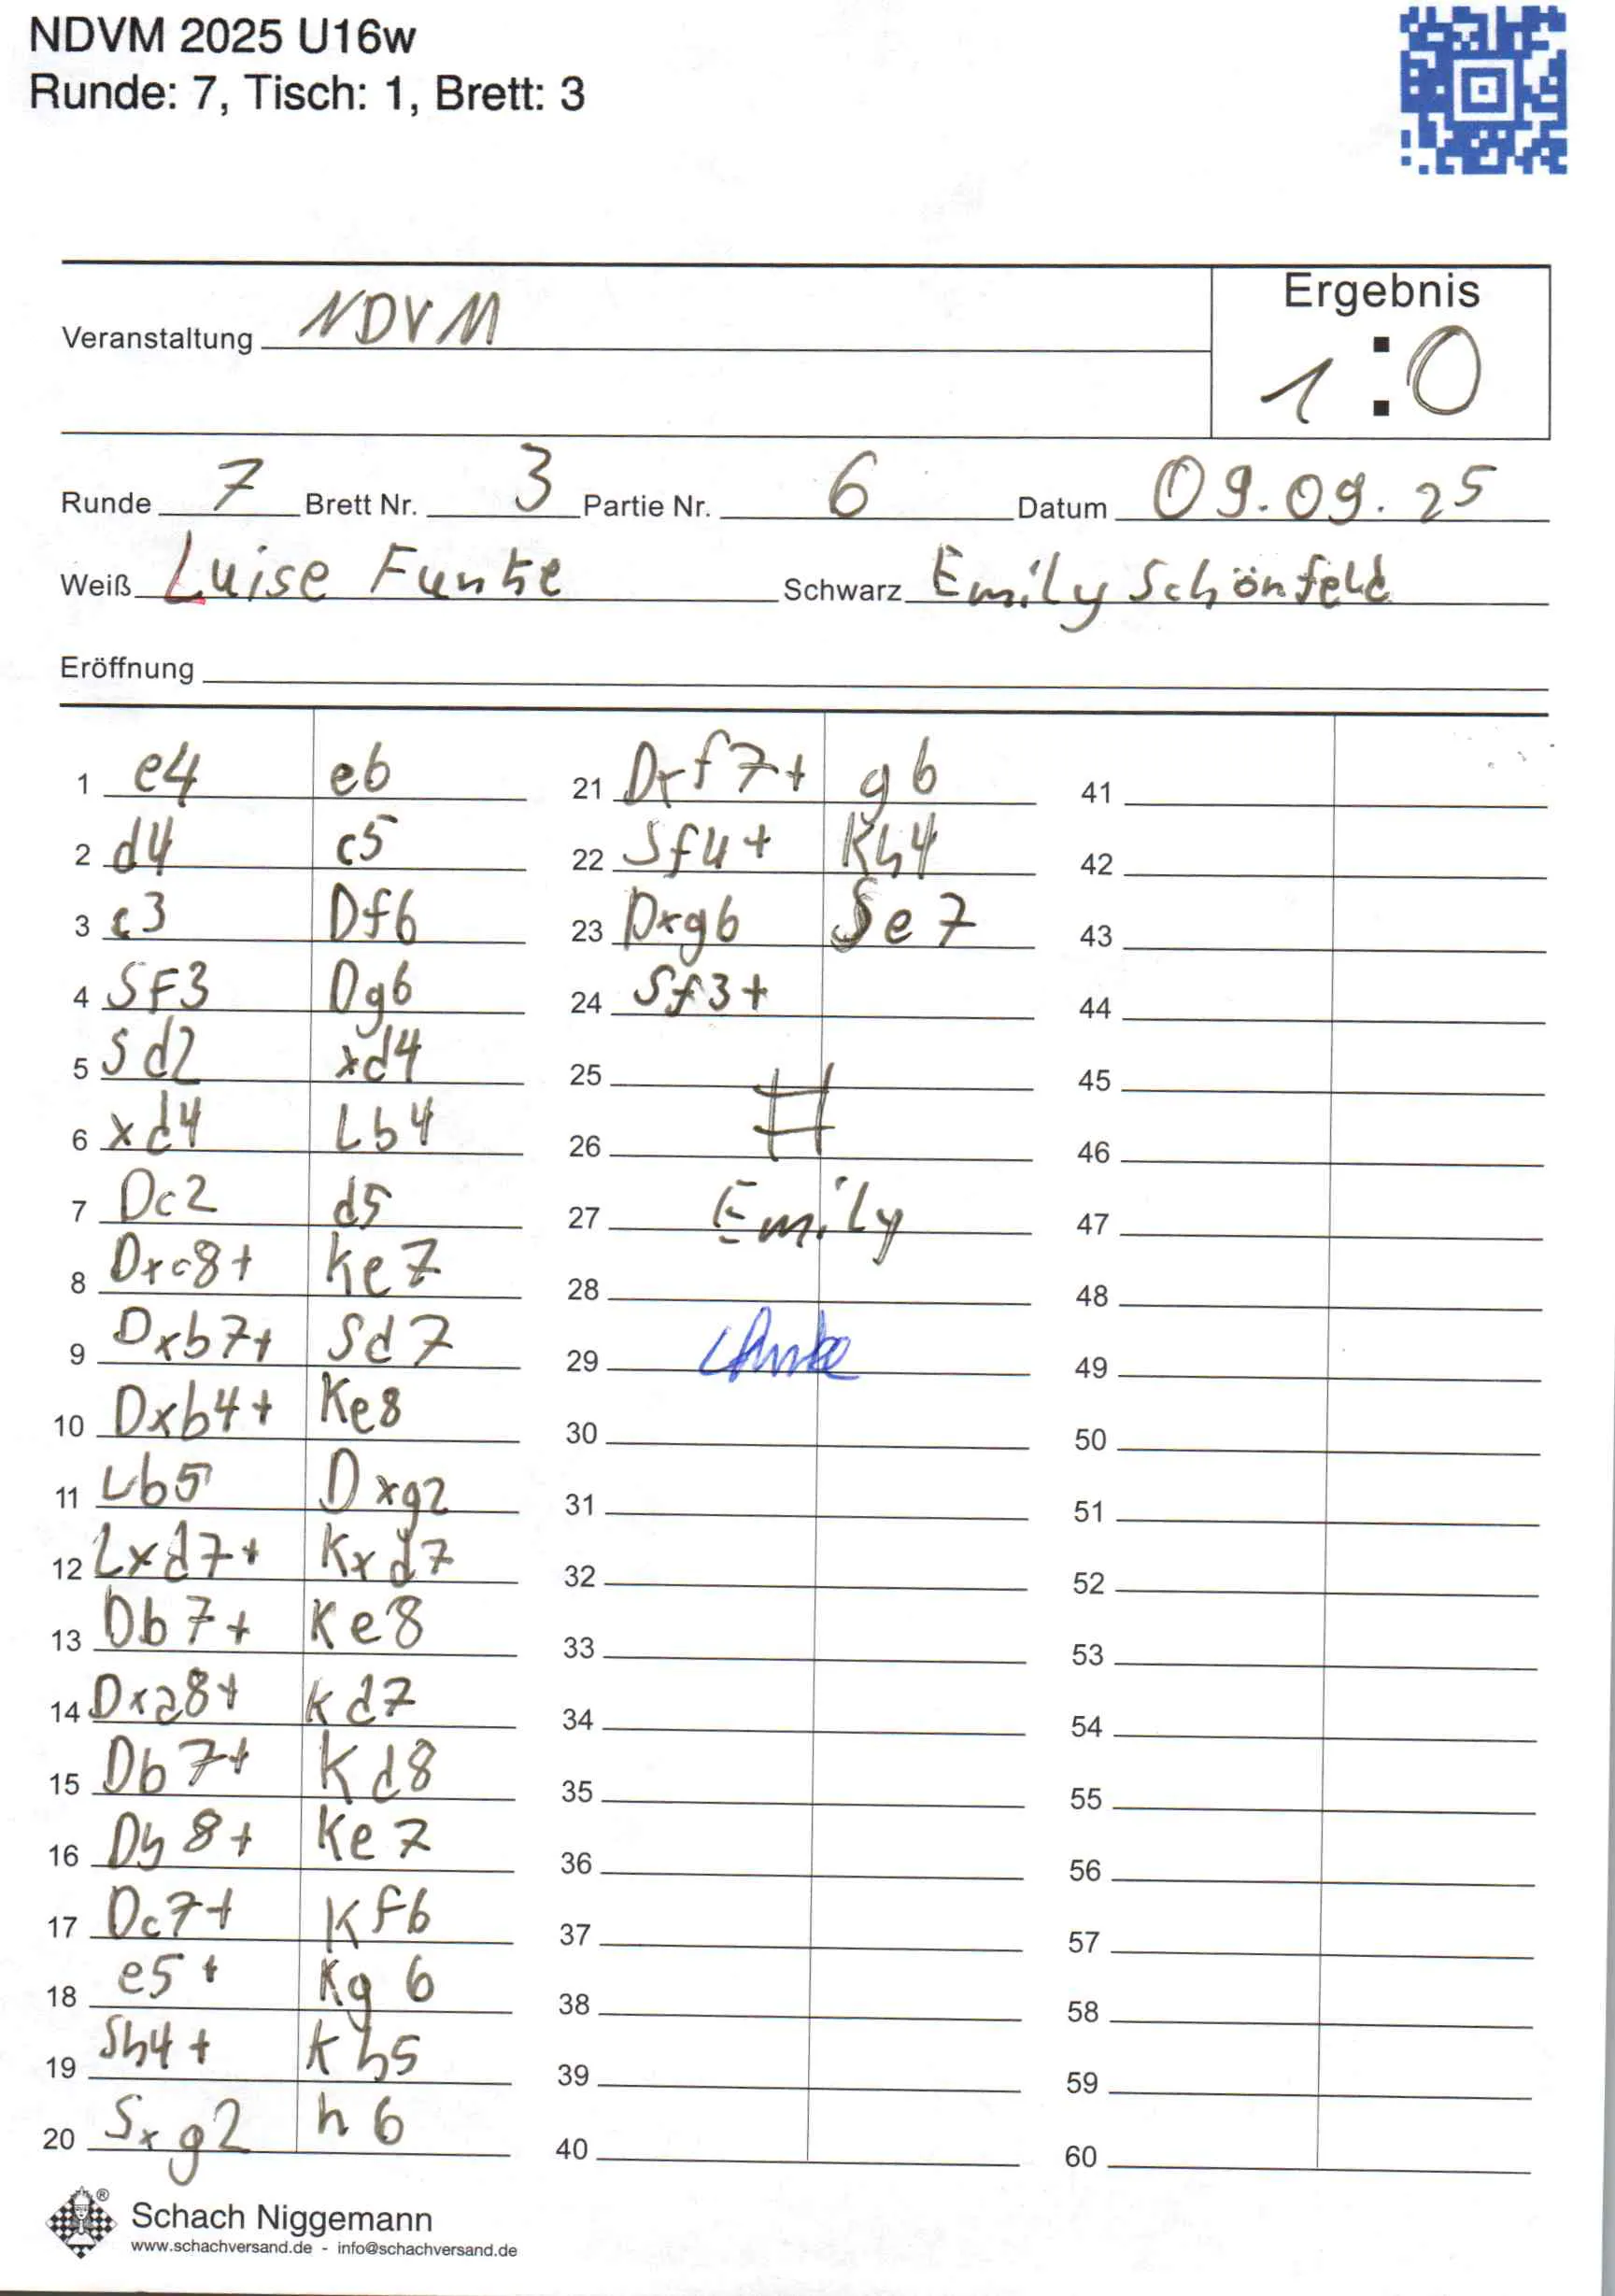 NDVM 2025 U16w
Runde: 7, Tisch: 1, Brett: 3
Ergebnis
Veranstaltung NDVM
1 : 0
Runde 7 Brett Nr. 3 Partie Nr. 6 Datum 09.09.25
Weiß Luise Funke Schwarz Emily Schönfeld
Eröffnung
1 e4 e6
2 d4 c5
3 c3 Df6
4 SF3 Dg6
5 Sd2 xd4
6 xd4 Lb4
7 Dc2 d5
8 Dxc8+ Ke7
9 Dxb7+ Sd7
10 Dxb4+ Ke8
11 Lb5 Dxg2
12 Lxd7+ Kxd7
13 Db7+ Ke8
14 Dxa8+ Kd7
15 Db7+ Kd8
16 Db8+ Ke7
17 Dc7+ Kf6
18 e5+ Kg6
19 Sh4+ Kh5
20 Sxg2 h6
21 Dxf7+ g6
22 Sf4+ Kh4
23 Dxg6 Se7
24 Sf3+
25
26 #
27 Emily
28
29
30
31
32
33
34
35
36
37
38
39
40
41
42
43
44
45
46
47
48
49
50
51
52
53
54
55
56
57
58
59
60
®
Schach Niggemann
www.schachversand.de - info@schachversand.de